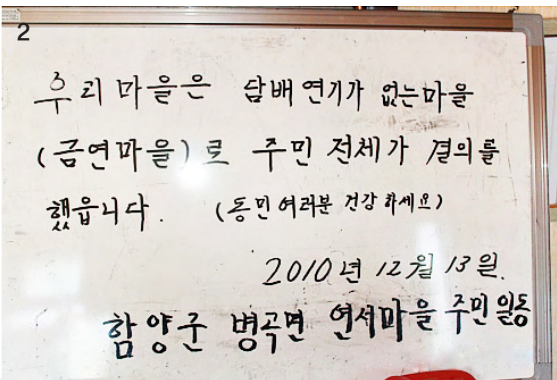 2
우리 마을은 담배연기가 없는마을
(금연마을)로 주민 전체가 결의를
했읍니다. (동민여러분 건강하세요)
2010년 12월 13일.
함양군 병곡면 연서마을 주민일동